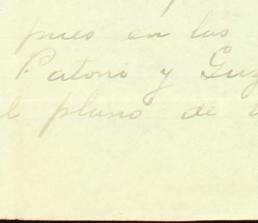 pues en las
Patoni y Guz
l plano de